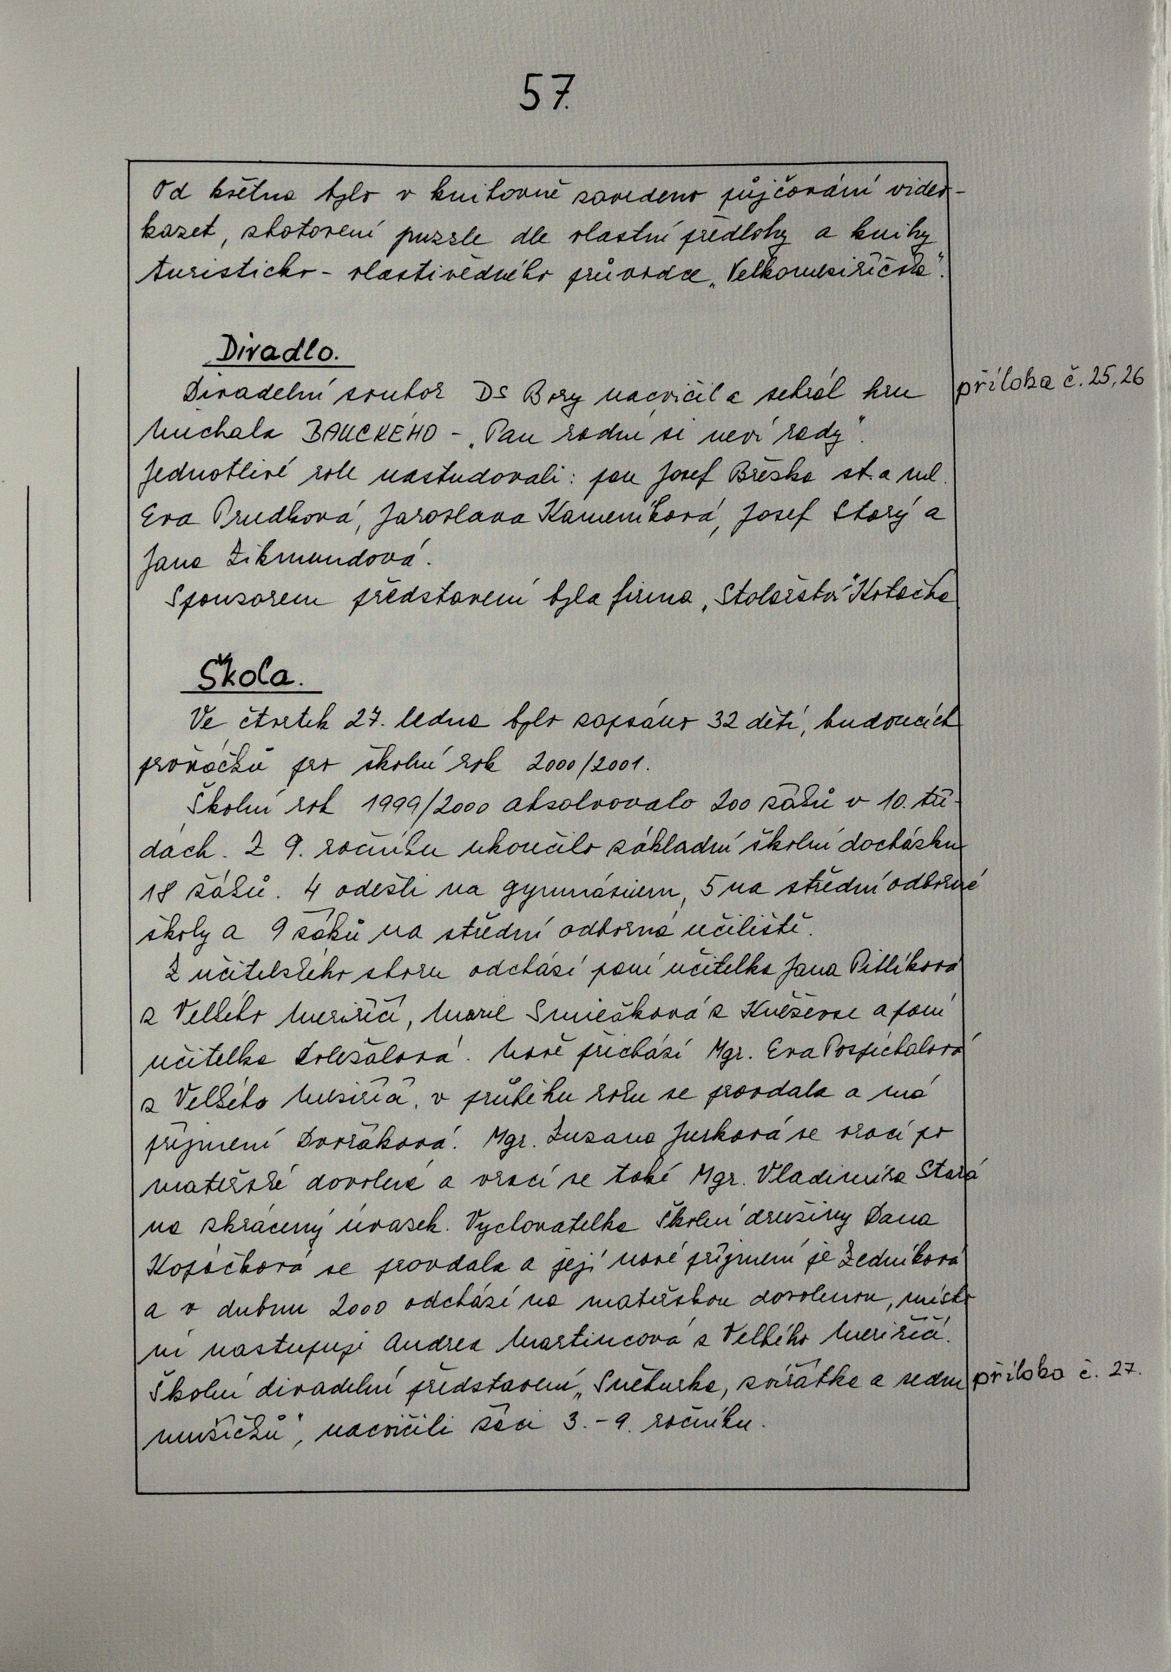 57.
Od května bylo v knihovně zavedeno půjčování video-
kazet, zhotovení puzzle dle vlastní předlohy a knihy
turisticko - vlastivědného průvodce „Velkomeziříčska".
Divadlo.
Divadelní soubor DS Bory nacvičil a sehrál hru
příloha č. 25, 26
Michala BANCKÉHO - „Pan radní si neví rady".
Jednotlivé role nastudovali: pan Josef Bržska st. a ml.
Eva Prudková, Jaroslava Kameníková, Josef Starý a
Jana Zikmundová.
Sponzorem představení byla firma „Stolařství" Kotačka
Škola.
Ve čtvrtek 27. ledna bylo zapsáno 32 dětí, budoucích
prvňáčků pro školní rok 2000/2001.
Školní rok 1999/2000 absolvovalo 200 žáků v 10. tří-
dách. Z 9. ročníku ukončilo základní školní docházku
18 žáků. 4 odešli na gymnásium, 5 na střední odborné
školy a 9 žáků na střední odborná učiliště.
Z učitelského sboru odchází paní učitelka Jana Pitlíková
z Velkého Meziříčí, Marie Smiešková z Kněževse a paní
učitelka Doležalová. Nově přichází Mgr. Eva Pospíchalová
z Velkého Meziříčí, v průběhu roku se provdala a má
příjmení Dvořáková. Mgr. Zuzana Jurková se vrací po
mateřské dovolené a vrací se také Mgr. Vladimíra Stará
na zkrácený úvazek. Vychovatelka školní družiny Dana
Kopáčková se provdala a její nové příjmení je Zedníková
a v dubnu 2000 odchází na mateřskou dovolenou, místo
ní nastupuje Andrea Martincová z Velkého Meziříčí.
Školní divadelní představení „Sněhurka, zvířátka a sedm
příloha č. 27.
mužíčků", nacvičili žáci 3. - 9. ročníku.